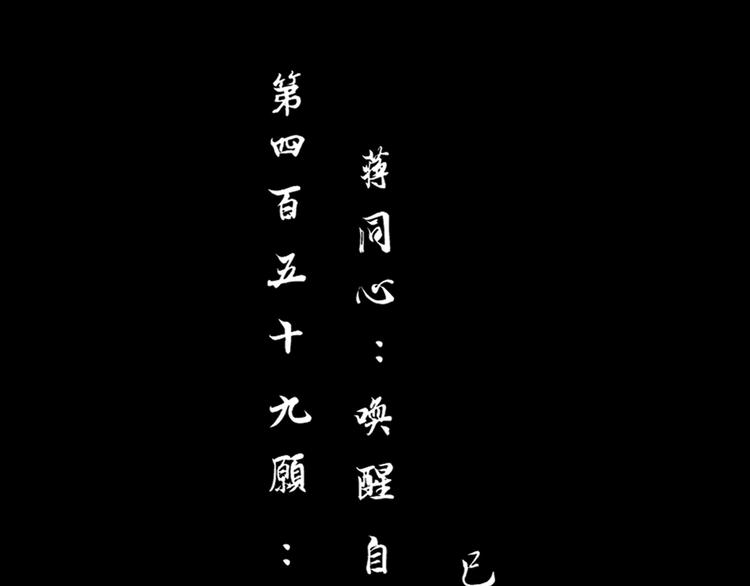 第四百五十九願：
蔣同心：喚醒自
已